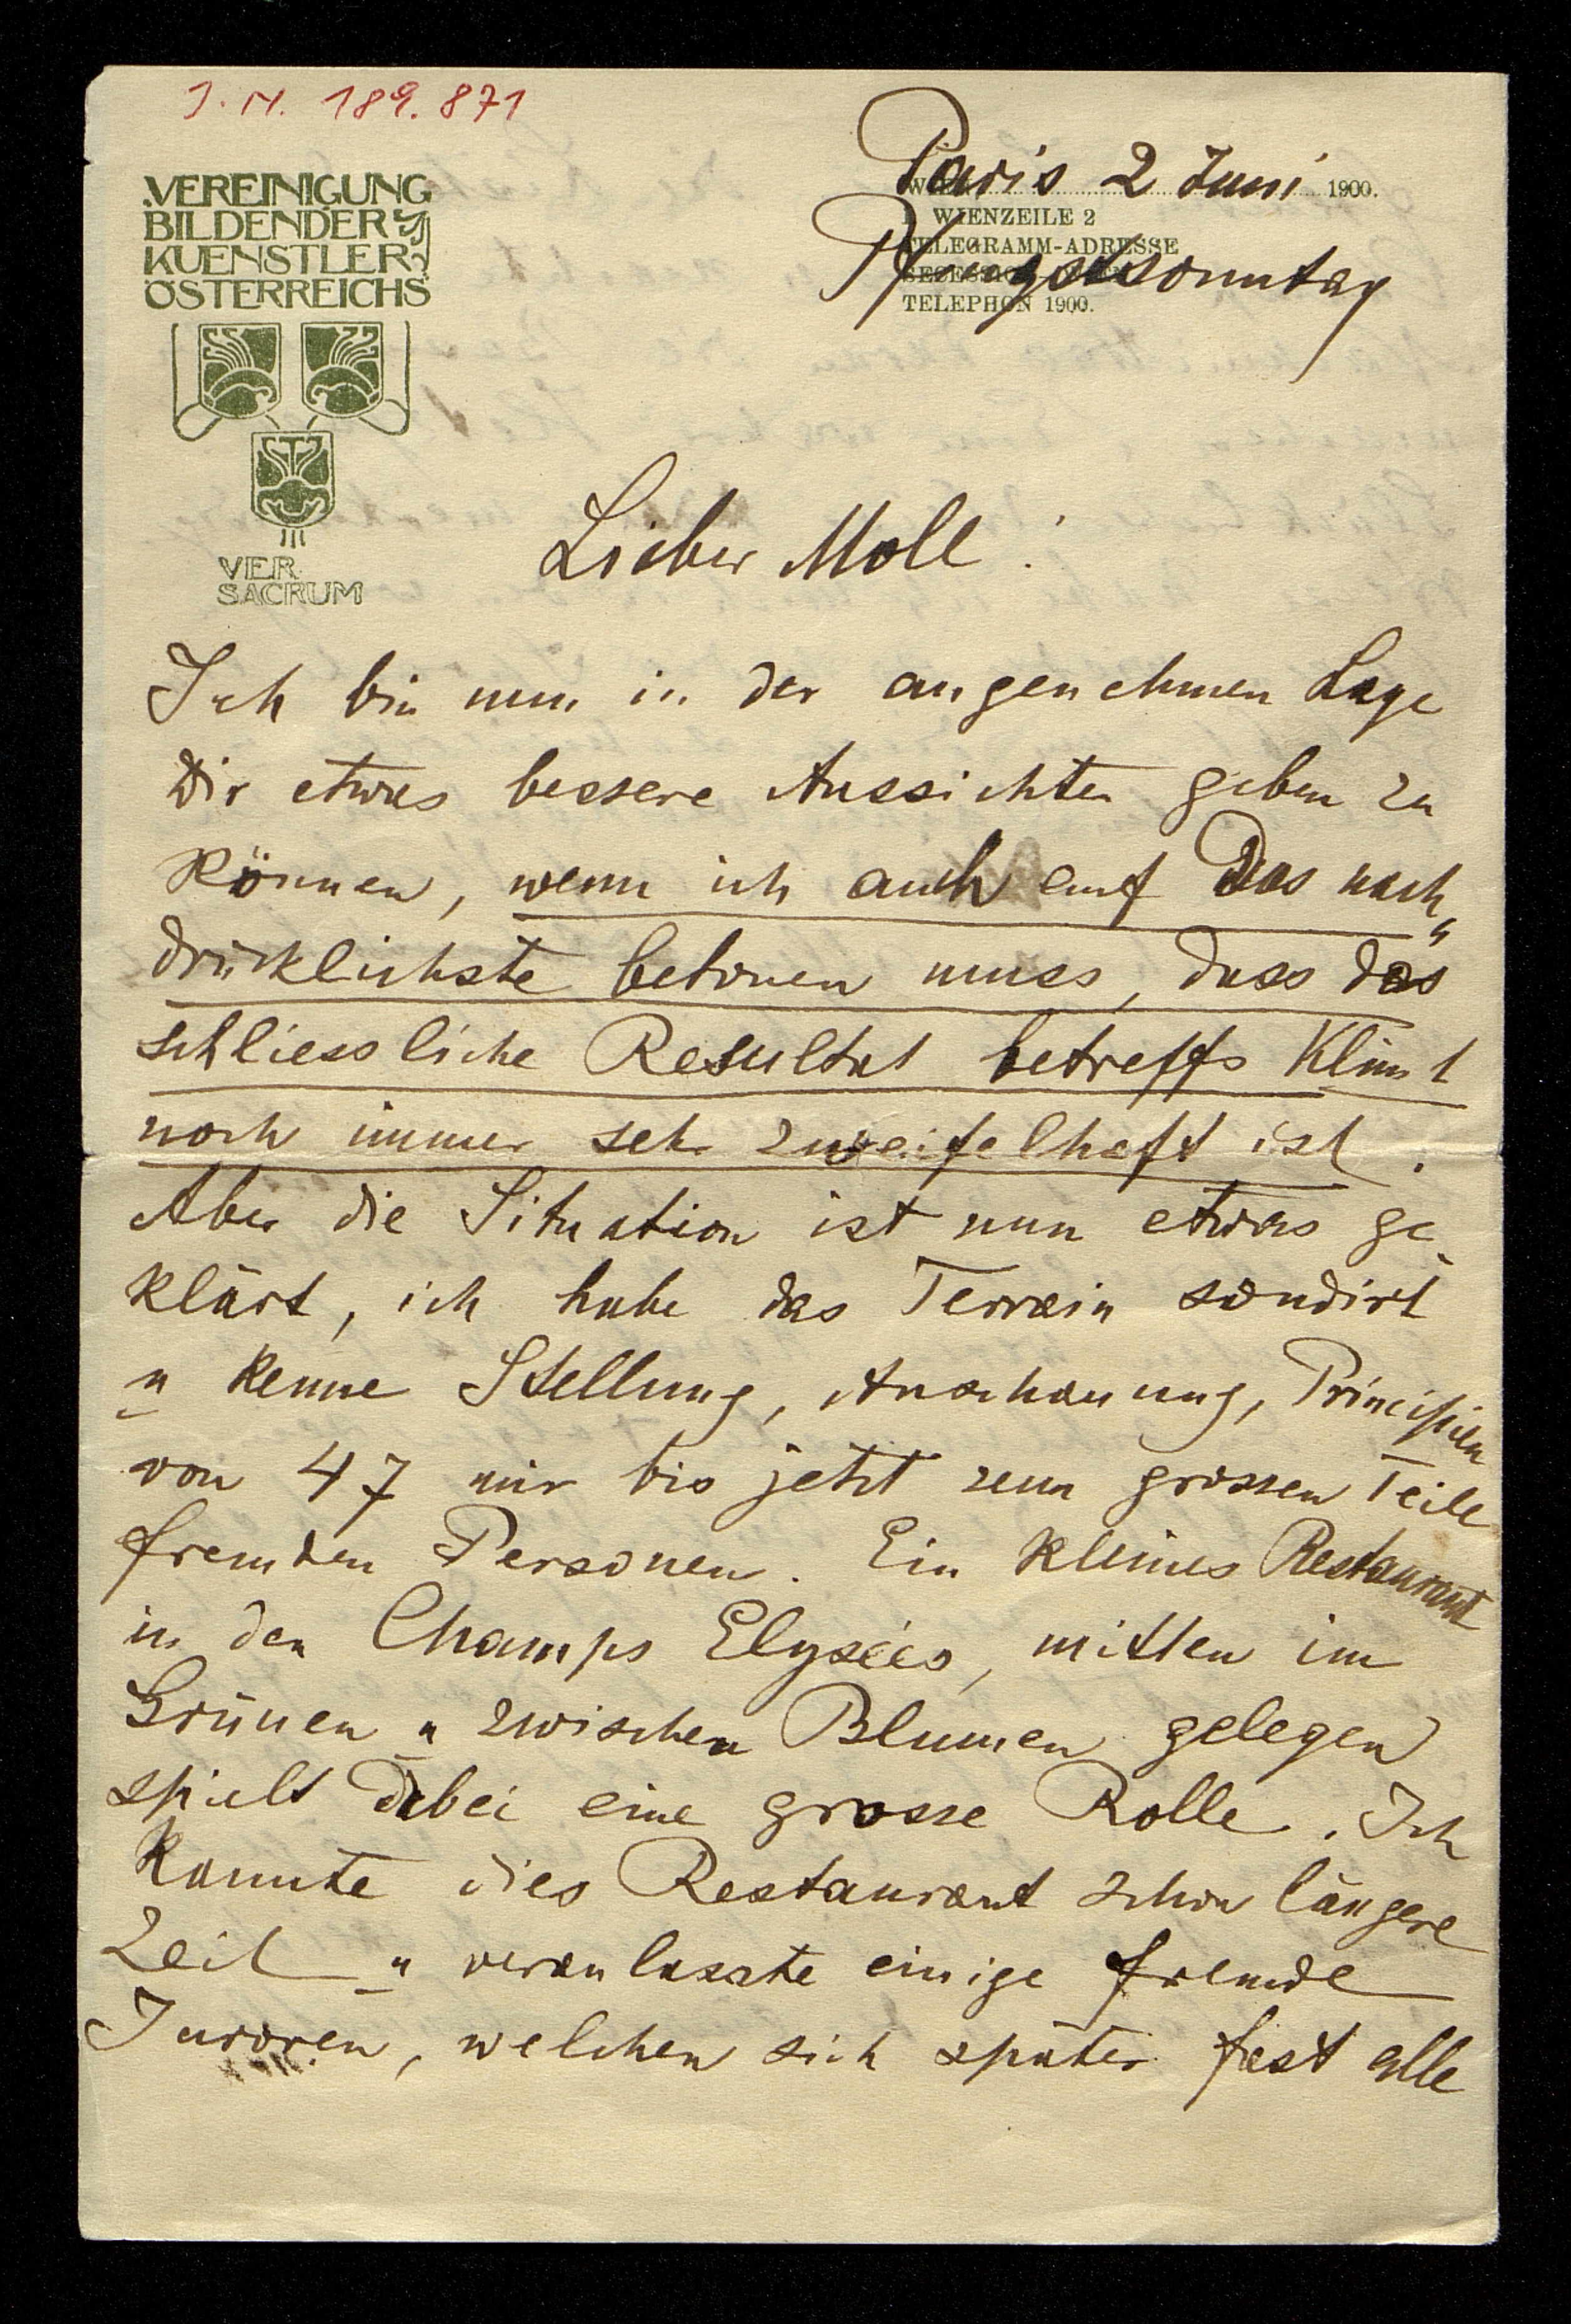 J. N. 189.871
VEREINIGUNG
BILDENDER
KUENSTLER
ÖSTERREICHS
VER
SACRUM
Paris 2 Juni 1900.
WIENZEILE 2
TELEGRAMM-ADRESSE
TELEPHON 1900.
Pfingstsonntag
Lieber Moll!
Ich bin nun in der angenehmen Lage
Dir etwas bessere Aussichten geben zu
können, wenn ich auch auf Das nach„
drücklichste betonen muss, dass das
schliessliche Resultat betreffs Klimt
noch immer sehr zweifelhaft ist.
Aber die Situation ist nun etwas ge-
klärt, ich habe das Terrain sondirt
u kenne Stellung, Anschauung, Principien
von 47 mir bis jetzt zum grossen Teile
fremden Personen. Ein kleines Restaurant
in den Champs Elysées, mitten im
Grünen u zwischen Blumen gelegen
spielt dabei eine grosse Rolle. Ich
kannte dies Restaurant schon längere
Zeit u veranlasste einige fremde
Juroren, welchen sich später fast alle